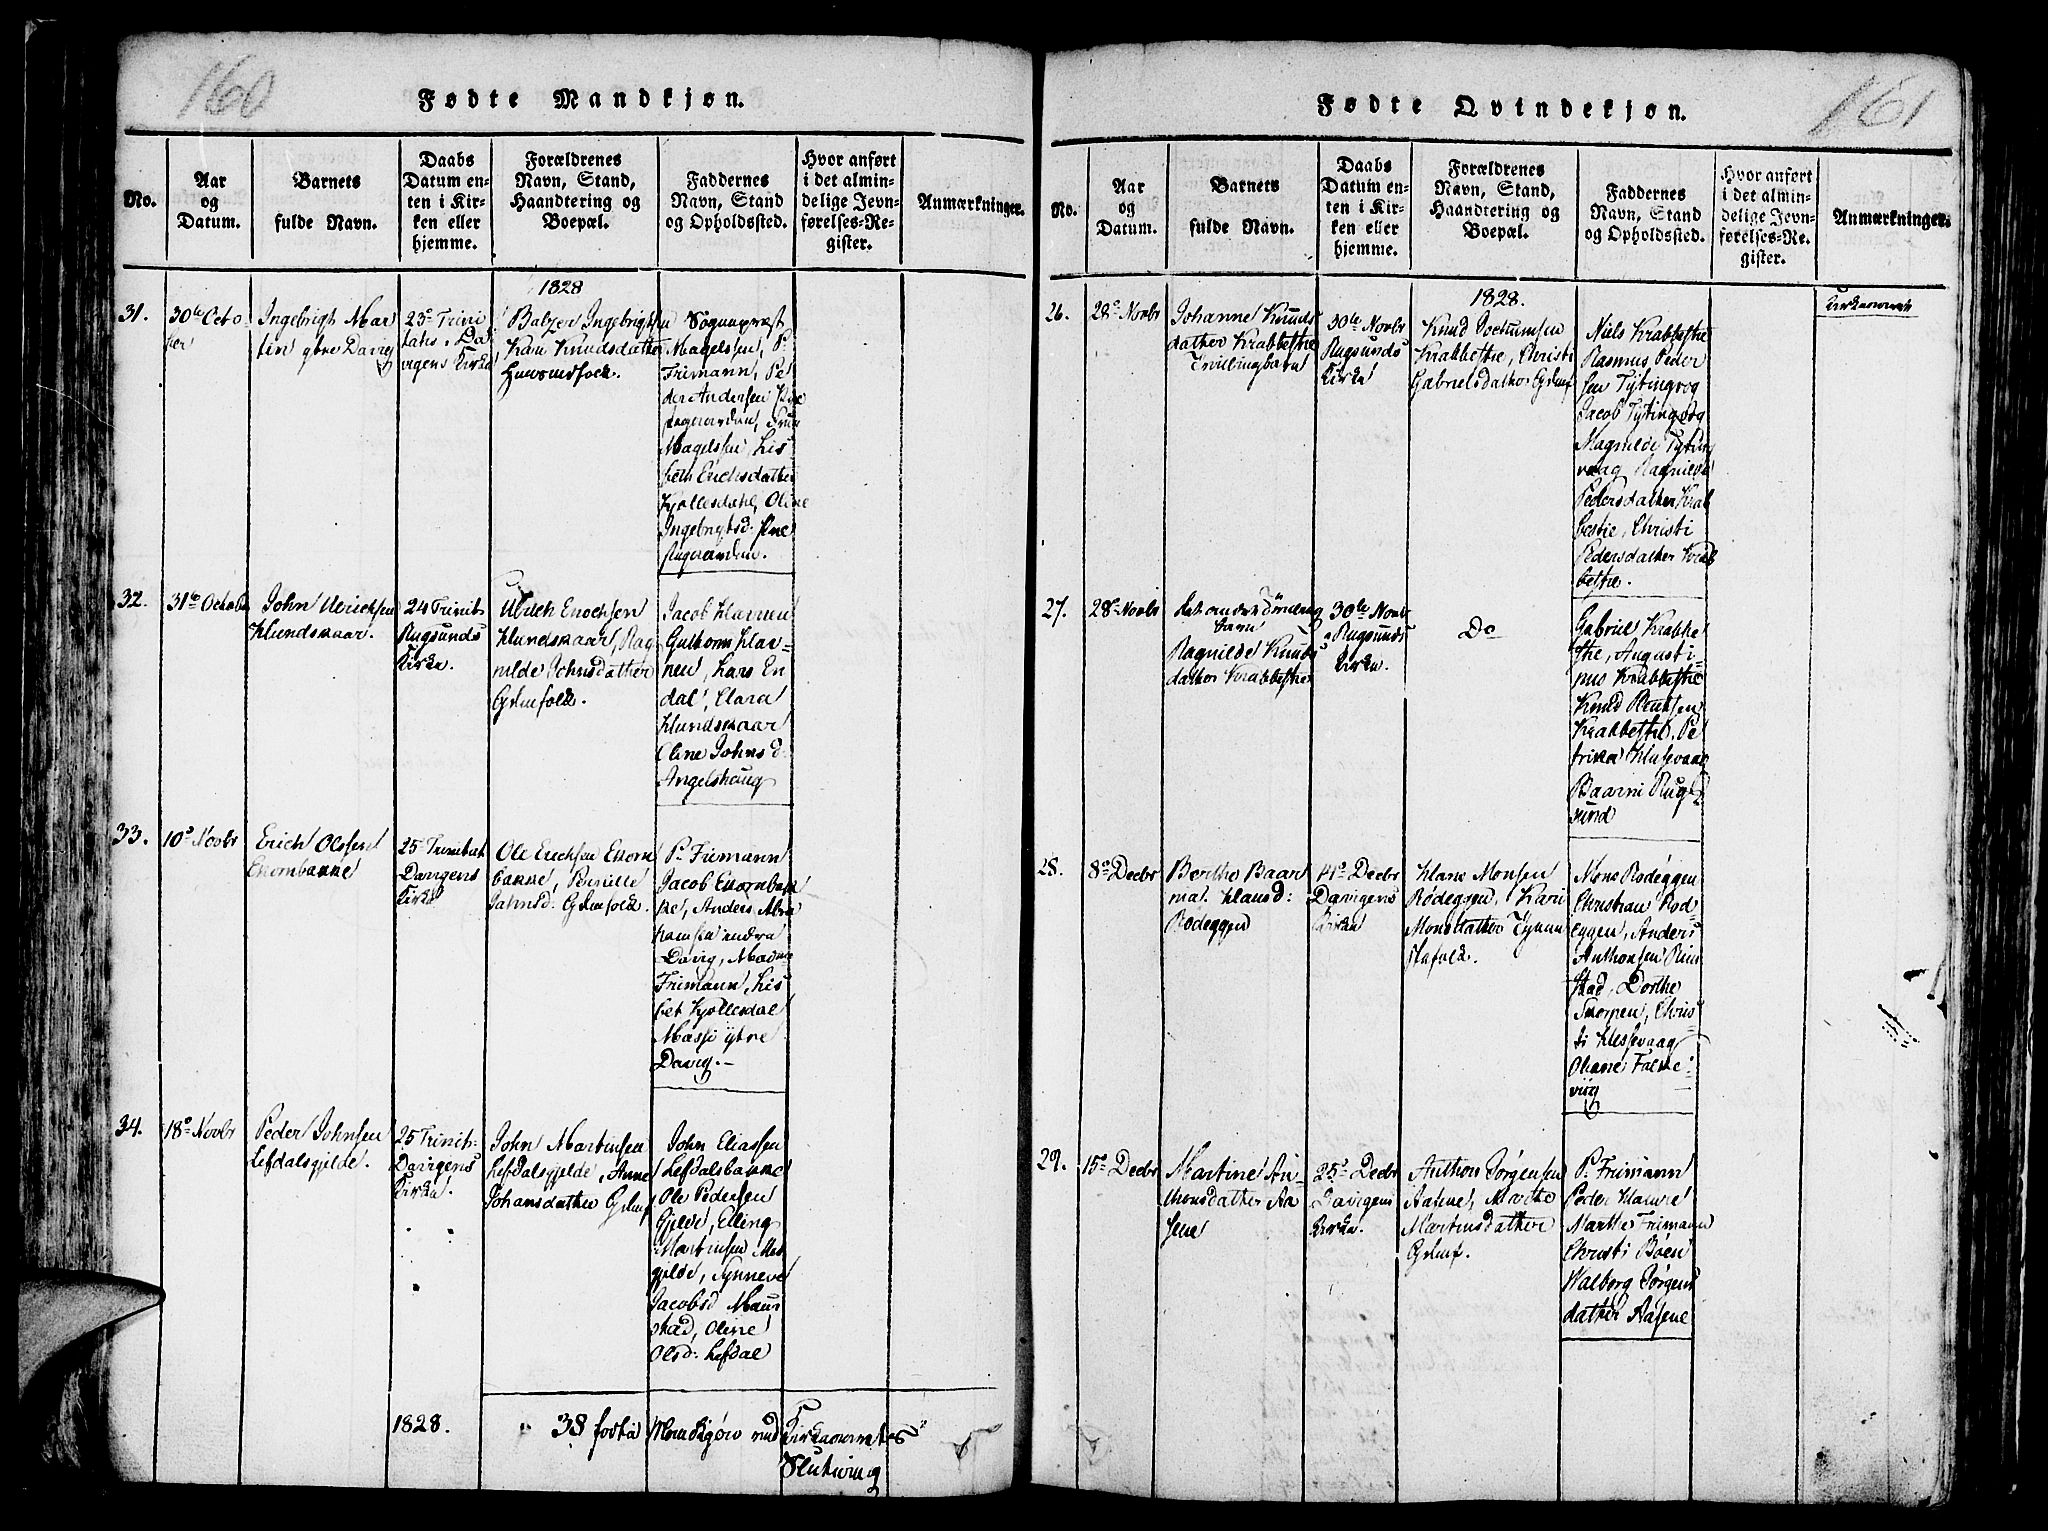 160
Fødte Mandkjøn.
No.
Aar
og
Datum.
Barnets
fulde Navn.
Daabs
Datum en-
ten i Kir-
ken eller
hjemme.
Forældrenes
Navn, Stand,
Haandtering og
Boepæl.
Faddernes
Navn, Stand
og Opholdssted.
Hvor anført
i det almin-
delige Jevn-
førelses-Re-
gister.
Anmærkninger.
1828
31.
30te Octo-
ber
Ingebrigt Mar
tin ytre Davig
23de Trini
tatis. Da
vigens Kirke
Balzer Ingebrigtsen
Kari Knudsdatter
Huusmdfolk.
Sognepræst
Magelssen, P.
Frimann, Pe
der Andersen
Frue
Magelssen, Lis
beth Erichsdatter
Kjøllesdahl, Oline
Ingebrigtsd:
32.
31te October
John Ulrichsen
Hundskaar.
24 Trinit:
Rugsunds
Kirke.
Ulrich Enochsen
Hundskaar, Rag
nilde Johnsdatter
Grdmfolk.
Jacob Havnen
Guthorm Hav-
nen, Lars En
dal, Clara
Hundskaar
Oline Johnsd:
Angelshaug
33.
10de Novbr
Erich Olssen
Ekornbakke
25de Trinitat
Davigens
Kirke
Ole Erichsen Ekorn
bakke, Pernille
Jahnsd: Grdmfolk.
P. Frimann
Jacob Ekornbak
ke, Anders Abra
hamsen indre
Davig, Madme
Frimann, Lis
bet Kjøllesdal
Massi ytre
Davig.-
34.
18de Novbr
Peder Johnsen
Lefdalsgjelde.
25 Trinit:
Davigens
Kirke.
John Martinsen
Lefdalsgjelde, Anne
Johansdatter Grdmf
John Eliassen
Lefdalsbakke
Ole Pedersen
Gjelde, Elling
Martinsen
gjelde, Synneve
Jacobsd Maur
stad, Oline
Olsd: Lefdal
1828.
38 fødte Mandkjøn ved Kirkeaarets
Slutning
161
Fødte Qvindekjøn.
No.
Aar
og
Datum.
Barnets
fulde Navn.
Daabs
Datum en-
ten i Kir-
ken eller
hjemme.
Forældrenes
Navn, Stand,
Haandtering og
Boepæl.
Faddernes
Navn, Stand
og Opholdssted.
Hvor anført
i det almin-
delige Jevn-
førelses-Re-
gister.
Anmærkninger.
1828.
Kirkeaaret
26.
28de Novbr
Johanne Knuds
datter Krabbestie
Tvillingbarn
30te Novbr
Rugsunds
Kirke
Knud Jochumsen
Krabbestie, Christi
Gabrielsdatter Grdmf
Niels Krabbestie
Rasmus Peder
sen Tytingvog
Jacob Tytingvog
Magnilde Tyting
vaag, Ragnilde
Pedersdatter Krab
bestie, Christi
Pedersdatter Krab
bestie.
27.
28de Novbr
det andet Tvilling
barn
Ragnilde Knuds
datter Krabbestie
30te Novbr
Rugsunds
Kirke.
Do
Gabriel Krabbe
stie, Augusti-
nus Krabbestie
Knud
Krabbestie, Pe
trikke Husevaag
Baarni Rug
sund
28.
8de Decbr
Berthe Baar
ma. Hansd:
Rødeggen
14de Decbr
Davigens
Kirke
Hans Monsen
Rødeggen, Kari
Monsdatter Tynnu
stafolk.
Mons Rødeggen
Christian Rød-
eggen, Anders
Anthonsen Rim
stad, Dorthe
Skorpen, Chris
ti Hessevaag
Oliane Falke-
viig
29.
15de Decbr
Martine An-
thonsdatter Aa
sene
25de Decbr
Davigens
Kirke.
Anthon Jørgensen
Aasene, Marthe
Martinsdatter
Grdmf.
P. Frimann
Peder Havre
Marthe Frimann
Christi Bøen
Walborg Jørgens
datter Aasene